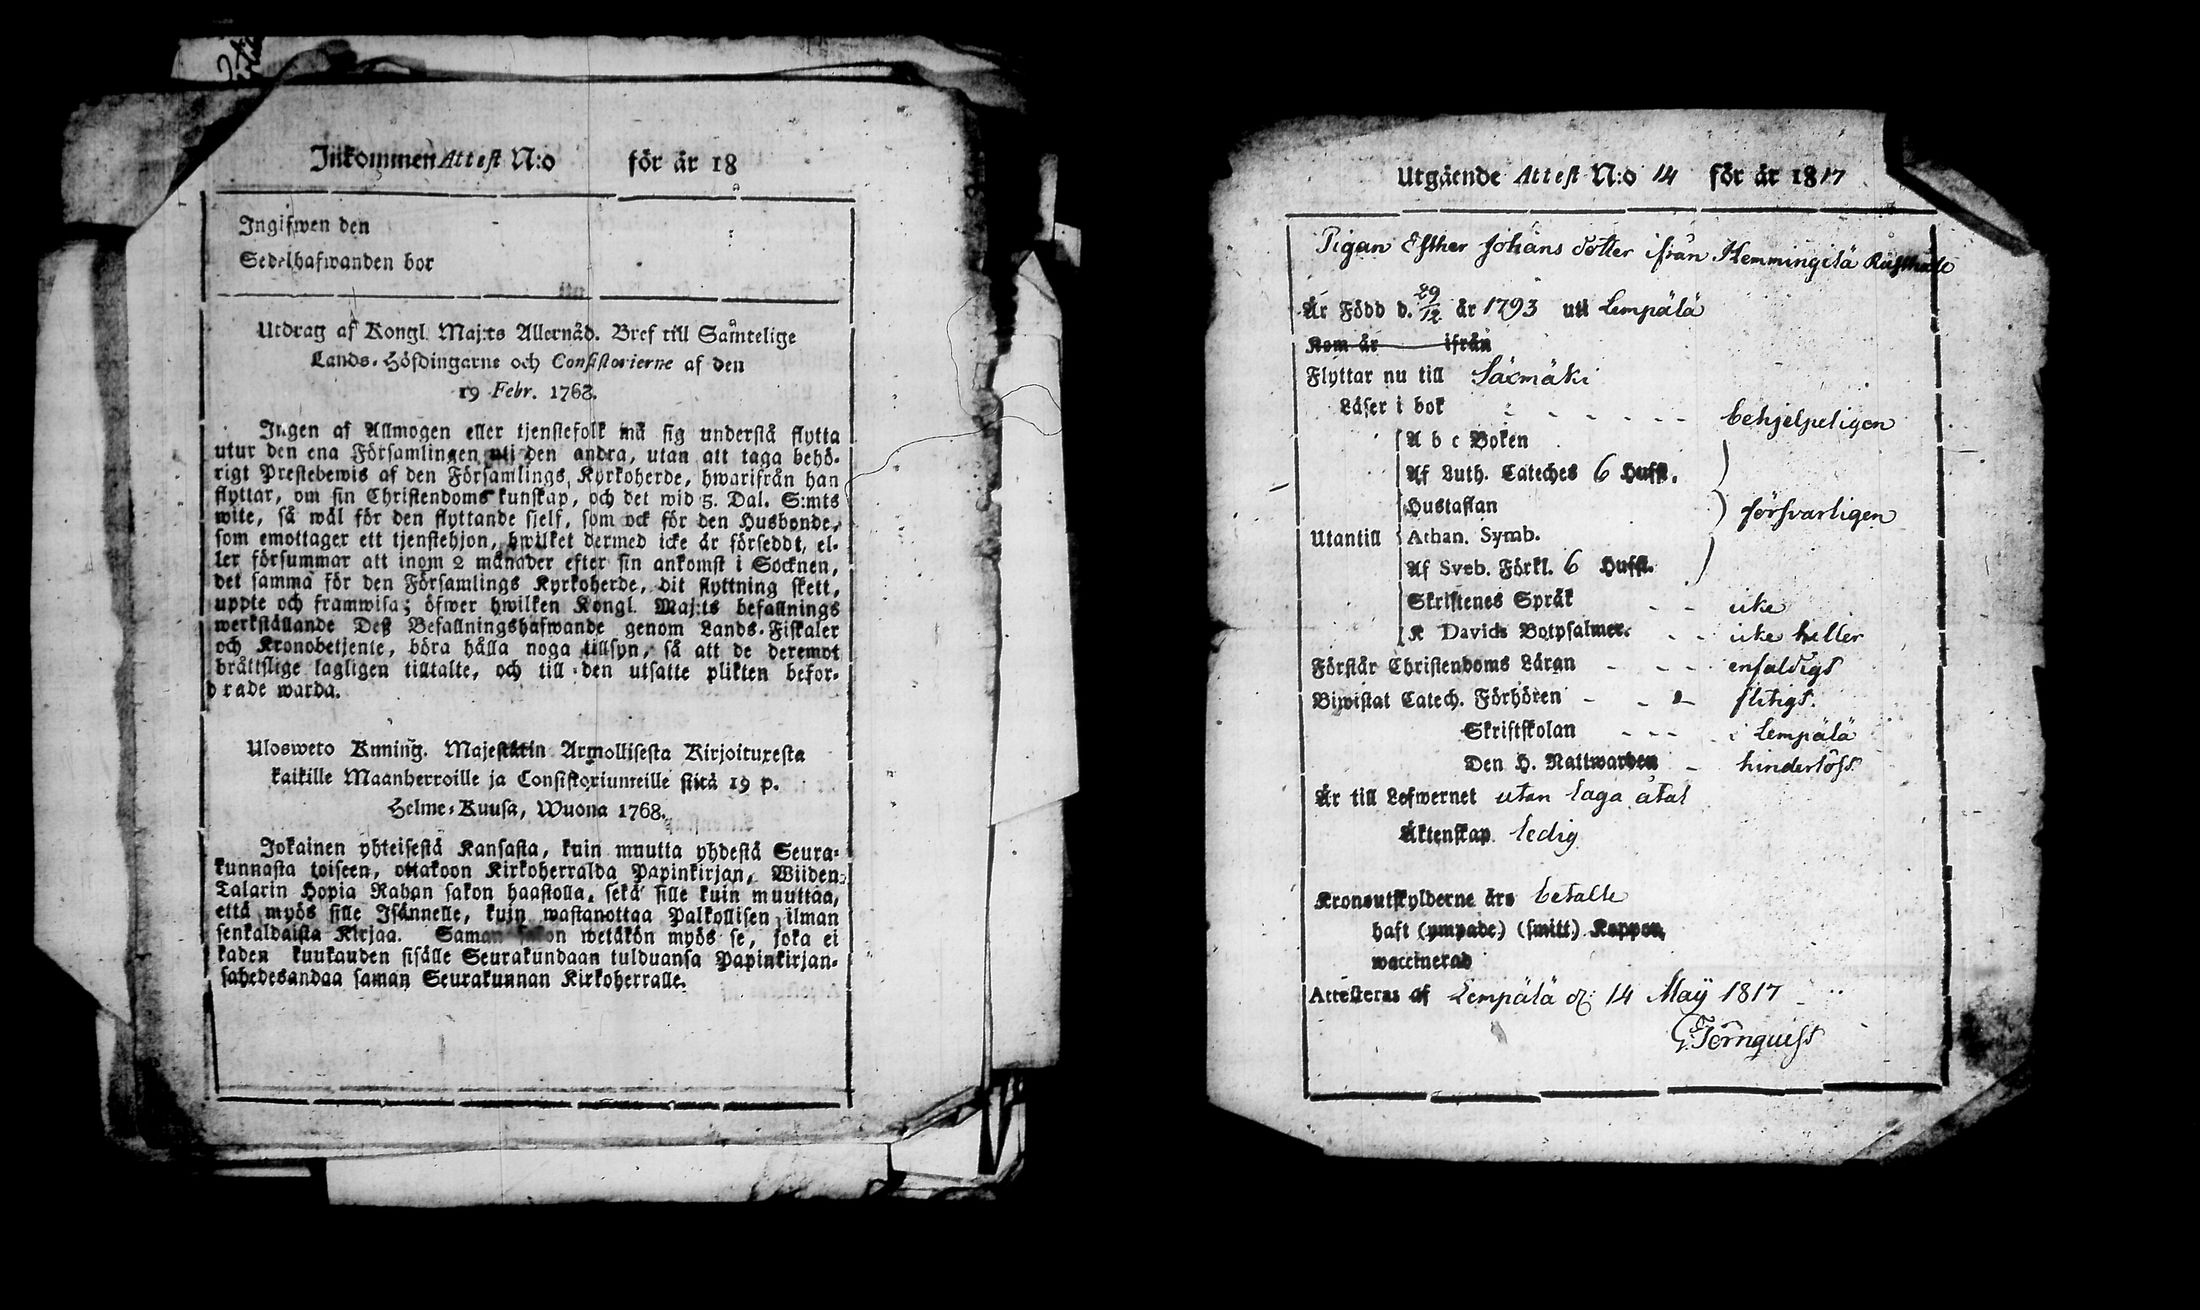 Inkommen Attest N:o för år 18
Ingifwen den
Sedelhafwanden bor
Utdrag af Kongl. Maj:ts Allernåd. Bref till Samtelige
Lands-Höfdingarne och Consistorierne af den
19 Febr. 1768.
Ingen af Allmogen eller tjenstefolk må sig understå flytta
utur den ena Församlingen uti den andra, utan att taga behö-
rigt Prestebewis af den Församlings Kyrkoherde, hwarifrån han
flyttar, om sin Christendoms kunskap, och det wid 5. Dal. S:mts
wite, så wäl för den flyttande sjelf, som ock för den Husbonde,
som emottager ett tjenstehjon, hwilket dermed icke är försedt, el-
ler försummar att inom 2 månader efter sin ankomst i Socknen,
det samma för den Församlings Kyrkoherde, dit flyttning skett,
uppte och framwisa; öfwer hwilken Kongl. Maj:ts befallnings
werkställande Deß Befallningshafwande genom Lands-Fiskaler
och Kronobetjente, böra hålla noga tillsyn, så att de deremot
bråttslige lagligen tilltalte, och till den utsatte plikten befor-
drade warda.
Ulosweto Knning. Majestätin Armollisesta Kirjoituxesta
kaikille Maanherroille ja Consistoriumreille siitä 19 p.
Helme-Kuusa, Wuona 1768.
Jokainen yhteisestä Kansasta, kuin muutta yhdestä Seura-
kunnasta toiseen, ottakoon Kirkoherralda Papinkirjan, Wiiden
Talarin Hopia Rahan sakon haastolla, sekä sille kuin muuttaa,
että myös sille Isännelle, kuin wastanottaa Palkollisen ilman
senkaldaista Kirjaa. Saman sakon wetäkön myös se, joka ei
kaden kuukauden sisälle Seurakundaan tulduansa Papinkirjan-
sahedesandaa saman Seurakunnan Kirkoherralle.
Utgående Attest N:o 14 för år 1817
Pigan Esther Johans dotter ifrån Hemmingilä Rusthåll
Är Född d. 29/12 år 1793 uti Lempälä
Kom år ifrån
Flyttar nu till Säxmäki
Läser i bok - - - - - - behjelpeligen
A b c Boken
Af Luth. Cateches 6 Hufst.
Hustaflan försvarligen
Utantill Athan. Symb.
Af Sveb. Förkl. 6 Hufst.
Skriftenes Språk - - icke
K Davids Botpsalmer. - - icke heller
Förstår Christendoms Läran - - - enfaldigt
Biwistat Catech. Förhören - - - flitigt.
Skriftskolan - - - i Lempälä
Den H. Nattwarden - hinderlöst
Är till Lefwernet utan laga åtal
Äktenskap ledig
Kronoutskylderne äro betalte
haft (ympade) (smitt) Koppor,
waccinerad
Attesteras af Lempälä d. 14 Maÿ 1817
G. Törnquist